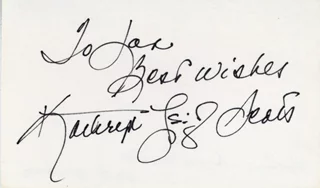 To Jan
Best Wishes
Kathryn Leigh Scott